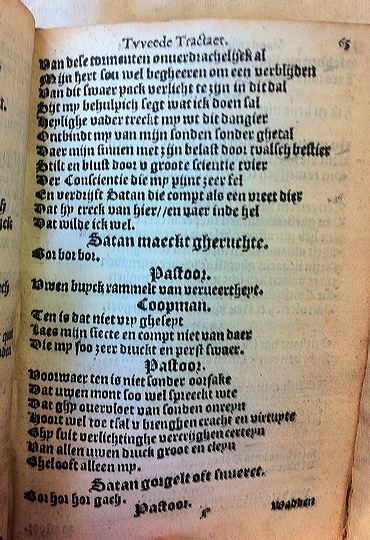 Tvveede Tractaet. 65
Van dese tormenten onverdrachelijck al
Mijn hert sou wel begheeren om een verblijden
Van dit swaer pack verlicht te zijn in dit dal
Sijt my behulpich segt wat ick doen sal
Heylighe vader treckt my wt dit dangier
Ontbindt my van mijn sonden sonder ghetal
Daer mijn sinnen met zijn belast door tvalsch bestier
Stilt en blust door v groote scientie tvier
Der Conscientie die my pijnt zeer fel
En verdrijft Satan die compt als een vreet dier
Dat hy treck van hier//en vaer inde hel
Dat wilde ick wel.
Satan maeckt gheruchte.
Bor bor bor.
Pastoor.
Vwen buyck rammelt van verveertheyt.
Coopman.
Ten is dat niet vry gheseyt
Laes mijn siecte en compt niet van daer
Die my soo zeer druckt en perst swaer.
Pastoor.
Voorwaer ten is niet sonder oorsake
Dat uwen mont soo wel spreeckt wte
Dat ghy overvloet van sonden onreyn
Hoort wel toe tsal v brenghen cracht en virtuyte
Ghy sult verlichtinghe vercrijghen certeyn
Van allen uwen druck groot en cleyn
Ghelooft alleen my.
Satan gorgelt oft snveret.
Gor hor hor gach.
Pastoor.
Wanneer